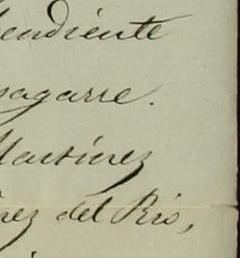 endiente
sagarre.
Martinez
nez del Rio,